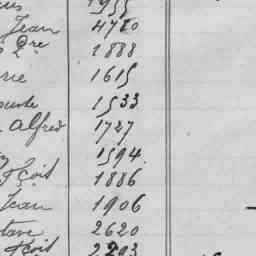 1955
Jean 4780
1888
rie 1615
1533
Alfred 1727
1594.
fçois 1886
Jean 1906
tave 2620
fçois 2293